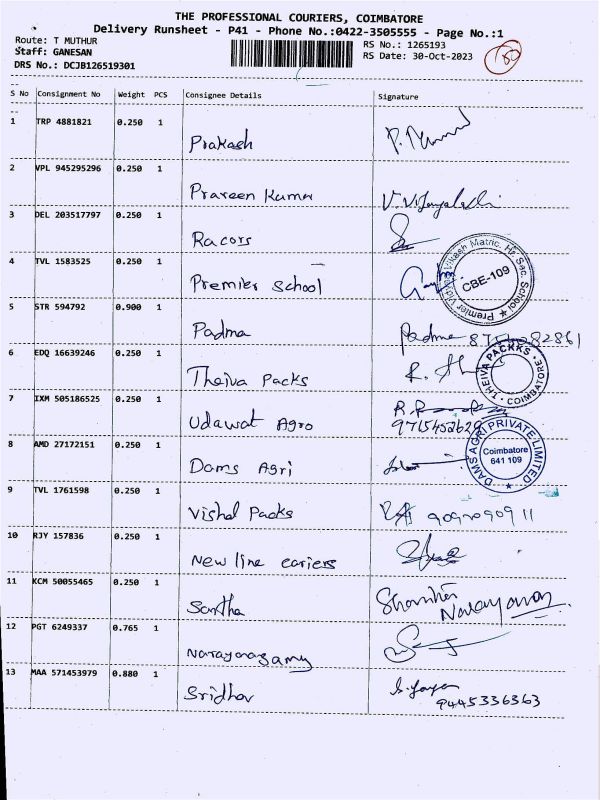 THE PROFESSIONAL COURIERS, COIMBATORE
Delivery Runsheet - P41 - Phone No.:0422-3505555 - Page No.:1
Route: T MUTHUR
Staff: GANESAN
DRS No.: DCJB126519301
RS No.: 1265193
RS Date: 30-Oct-2023
S No Consignment No Weight PCS Consignee Details Signature
1 TRP 4881821 0.250 1 Prakash
2 VPL 945295296 0.250 1 Praveen Kumar
3 DEL 203517797 0.250 1 Racors
4 TVL 1583525 0.250 1 Premier School
Premier Vidhya Vikash Matric. Hr. Sec. School
CBE-109
5 STR 594792 0.900 1 Padma Padma
6 EDQ 16639246 0.250 1 Theiva Packs
THEIVA PACKKS
COIMBATORE
7 IXM 505186525 0.250 1 Udawat Agro
8 AMD 27172151 0.250 1 Dams Agri
DAMS AGRI PRIVATE LIMITED
Coimbatore
641 109
9 TVL 1761598 0.250 1 Vishal Packs
10 RJY 157836 0.250 1 New line cariers
11 KCM 50055465 0.250 1 Santha Narayanan
12 PGT 6249337 0.765 1 Narayanasamy
13 MAA 571453979 0.880 1 Sridhar
9445336363